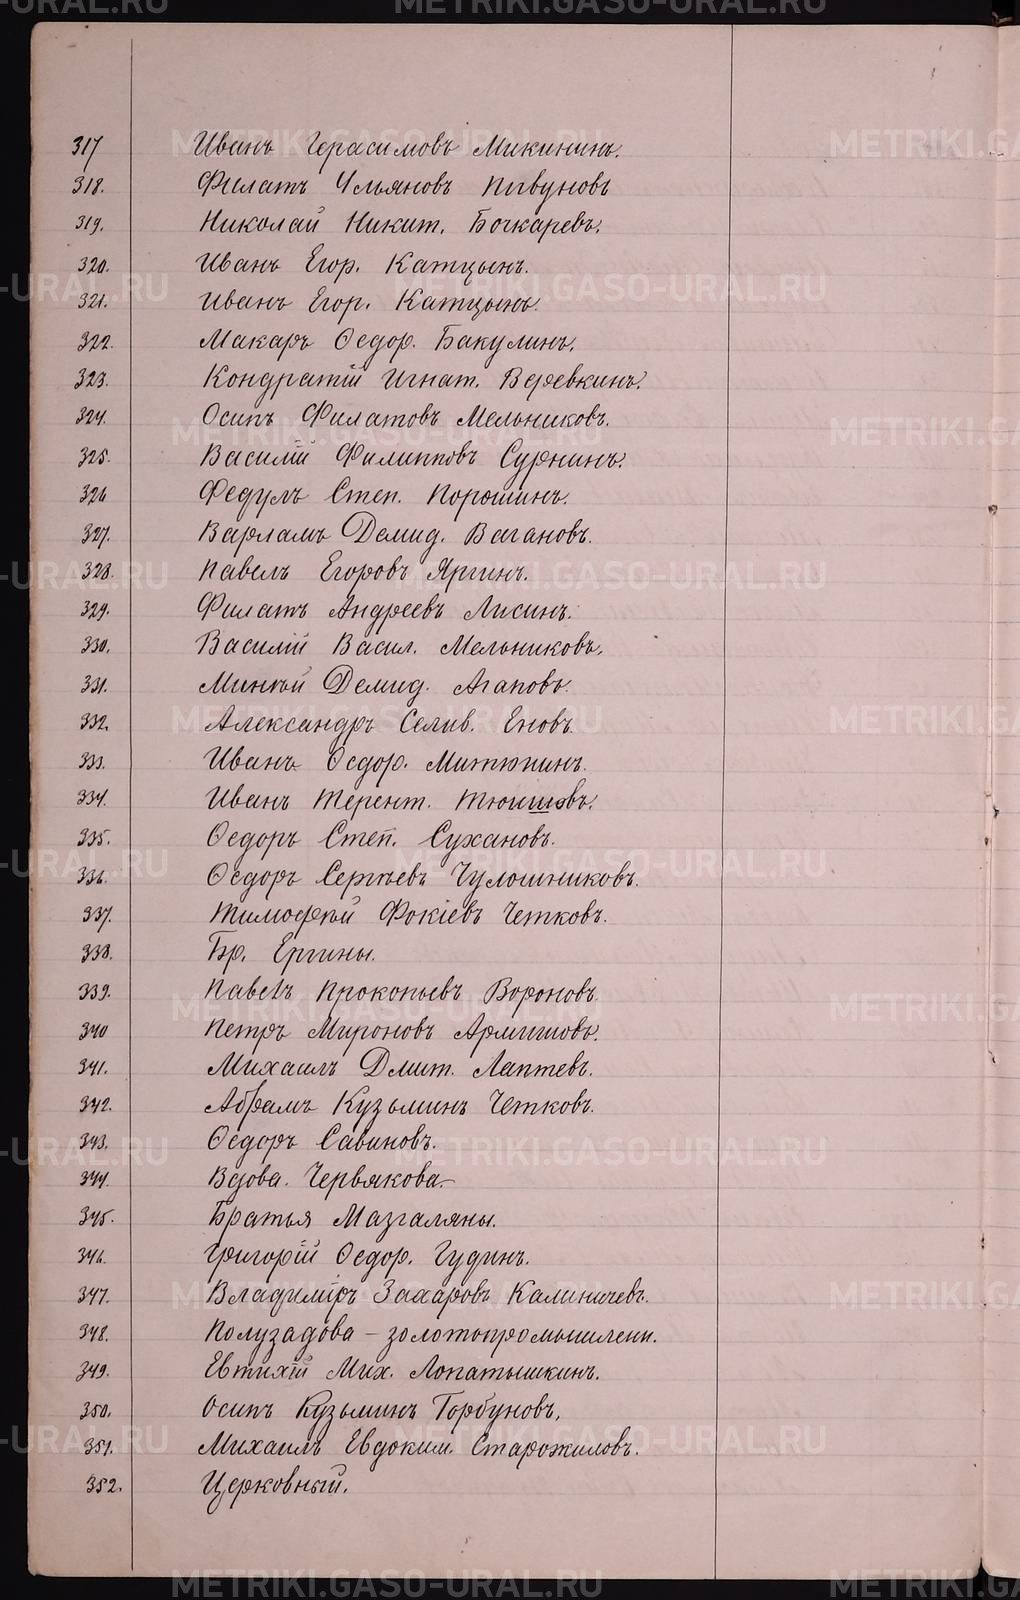 317 Иванъ Герасимовъ Микининъ.
318. Филатъ Ульяновъ Пивуновъ
319. Николай Никит. Бочкаревъ.
320. Иванъ Егор. Катцынъ.
321. Иванъ Егор. Катцынъ.
322. Макаръ Ѳедор. Бакулинъ.
323. Кондратій Игнат. Веревкинъ.
324. Осипъ Филатовъ Мельниковъ.
325. Василій Филипповъ Сурнинъ.
326 Федулъ Степ. Порошинъ.
327. Варламъ Демид. Вагановъ.
328. Павелъ Егоровъ Яргинъ.
329. Филатъ Андреевъ Лисинъ.
330. Василій Васил. Мельниковъ.
331. Минѣй Демид. Агаповъ.
332. Александръ Селив. Еновъ.
333. Иванъ Ѳедор. Митюнинъ.
334. Иванъ Терент.
335. Ѳедоръ Степ. Сухановъ.
336. Ѳедоръ Сергѣевъ Чулошниковъ.
337. Тимофѣй Фокіевъ Четковъ.
338. Бр. Ергины.
339. Павелъ Прокопьевъ Вороновъ.
340 Петръ Мироновъ Армишовъ.
341. Михаилъ Дмит. Лаптевъ.
342. Абрамъ Кузьминъ Четковъ.
343. Ѳедоръ Савиновъ.
344. Вдова. Червякова.-
345. Братья Мазгаляны.
346. Григорій Ѳедор. Гудинъ.
347. Владиміръ Захаровъ Калиничевъ.
348. Полузадова - золотопромышленн.
349. Евтихій Мих. Лопатышкинъ.
350. Осипъ Кузьминъ Горбуновъ.
351. Михаилъ Евдоким. Старожиловъ.
352. Церковный.
METRIKI.GASO-URAL.RU